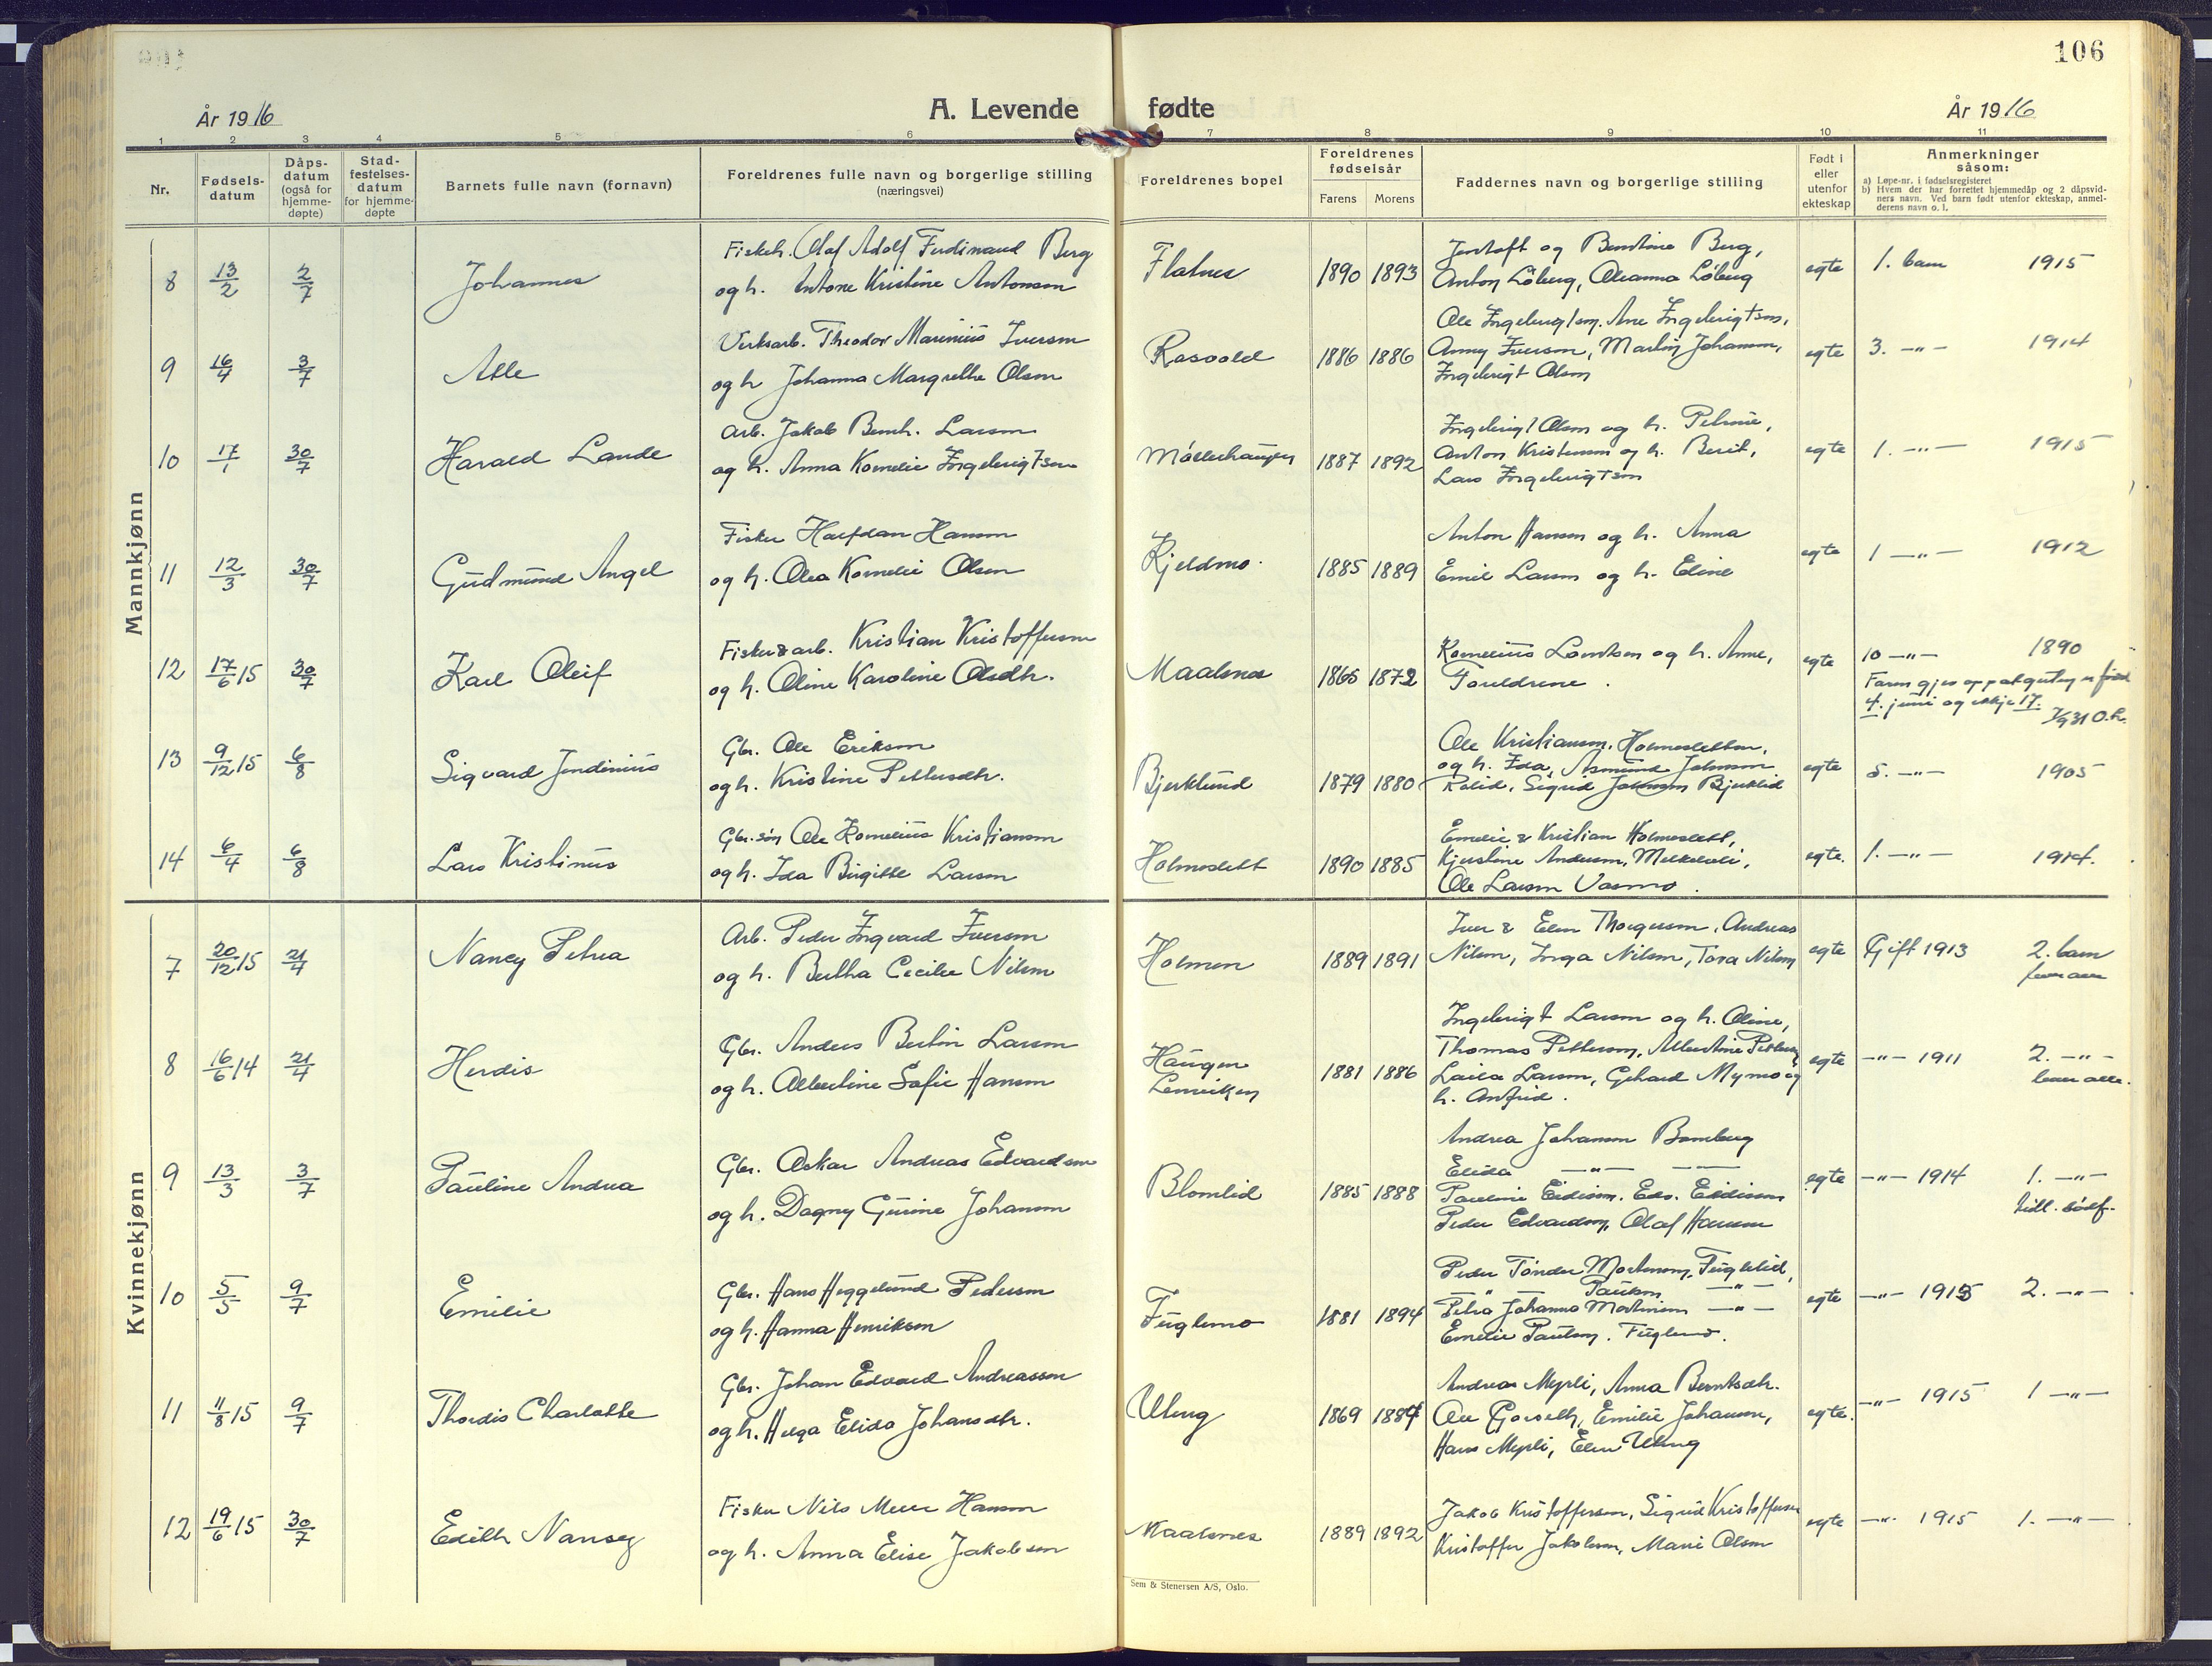 106
År 1916
A. Levende fødte
År 1916
1 2 3 4 5 6 7 8 9 10 11
Nr.
Fødsels-
datum
Dåps-
datum
(også for
hjemme-
døpte)
Stad-
festelses-
datum
for hjemme-
døpte
Barnets fulle navn (fornavn)
Foreldrenes fulle navn og borgerlige stilling
(næringsvei)
Foreldrenes bopel
Foreldrenes
fødselsår
Farens Morens
Faddernes navn og borgerlige stilling
Født i
eller
utenfor
ekteskap
Anmerkninger
såsom:
a) Løpe-nr. i fødselsregisteret
b) Hvem der har forrettet hjemmedåp og 2 dåpsvid-
ners navn. Ved barn født utenfor ekteskap, anmel-
derens navn o. l.
Mannkjønn
8 13/2 2/7 Johannes
Fiskeh. Olaf Adolf Ferdinand Berg
og h. Antone Kristine Antonsen
Flatnes 1890 1893
Jentoft og Berntine Berg,
Anton Löberg, Oleanna Löberg
egte 1. barn 1915
9 16/4 3/7 Atle
Verksarb. Theodor Marinius Iversen
og h Johanna Margrethe Olsen
Rosvold 1886 1886
Ole Ingebrigtsen, Ane Ingebrigtsen,
Anny Iversen, Martin Johansen,
Ingebrigt Olsen
egte 3. -"- 1914
10 17/1 30/7 Harald Lande
Arb. Jakob Bernh. Larsen
og h. Anna Kornelie Ingebrigtsen
Möllerhaugen 1887 1892
Ingebrigt Olsen og h. Petrine,
Anton Kristensen og h. Berit,
Lars Ingebrigtsen
egte 1. -"- 1915
11 12/3 30/7 Gudmund Angel
Fisker Halfdan Hansen
og h. Olea Kornelie Olsen
Kjeldmo. 1885 1889
Anton Hansen og h. Anna
Emil Larsen og h. Eline
egte 1 -"- 1912
12 17/6 15 30/7 Karl Oleif
Fisker & arb. Kristian Kristoffersen
og h. Oline Karoline Olsdtr.
Maalsnes 1865 1872
Kornelius Lorntsen og h. Anne,
Foreldrene.
egte 10 -"- 1890
Faren gjev opp at guten er född
4. juni og ikkje 17. 7/9 31 O.h.
13 9/12 15 6/8 Sigvard Jendinius
Gbr. Ole Eriksen
og h. Kristine Pettersdtr.
Bjerklund 1879 1880
Ole Kristiansen, Holmesletten,
og h. Ida, Asmund Johnsen
Kolid, Sigrid Johnsen Bjerklid
egte 5. -"- 1905
14 6/4 6/8 Lars Kristinus
Gbr. sön Ole Kornelius Kristiansen
og h. Ida Birgitte Larsen
Holmeslett 1890 1885
Emelie & Kristian Holmeslett,
Kjerstine Andersen, Melkelvli,
Ole Larsen Vasmo.
egte. 1. -"- 1914.
Kvinnekjønn
7 20/12 15 21/4 Nancy Petrea
Arb. Peder Ingvard Iversen
og h. Bertha Cecilie Nilsen
Holmen 1889 1891
Iver & Elen Thorgersen, Andreas
Nilsen, Inga Nilsen, Tora Nilsen
egte Gift 1913 2. barn
8 16/6 14 21/4 Herdis
Gbr. Anders Bertin Larsen
og h. Albertine Sofie Hansen
Haugen
Lenviken
1881 1886
Ingebrigt Larsen og h. Oline,
Thomas Pettersen, Albertine Pettersen
Laila Larsen, Gehard Mymo og
h. Anfrid.
egte -"- 1911 2. -"-
9 13/3 3/7 Pauline Andrea
Gbr. Oskar Andreas Edvardsen
og h. Dagny Gurine Johansen
Blomlid 1885 1888
Andrea Johansen Bomberg
Elida -"- -"-
Pauline Eidissen, Edv. Eidissen
Peder Edvardsen, Olaf Hansen
egte -"- 1914 1. -"-
tidl. dödf.
10 5/5 9/7 Emilie
Gbr. Hans Heggelund Pedersen
og h. Hanna Henriksen
Fuglemo 1881 1894
Peder Tönder Mortensen, Fuglelid,
-"- Paulsen -"-
Petra Johanna Mortensen -"-
Emelie Paulsen. Fuglemo.
egte -"- 1915 2. -"-
11 11/8 15 9/7 Thordis Charlotte
Gbr. Johan Edvard Andreassen
og h. Helga Elida Johansdtr.
Uteng 1869 1884
Andreas Myrli, Anna Berntsdtr.
Ole Gjovelh, Emilie Johansen,
Hans Myrli, Elen Uteng
egte. -"- 1915 1 -"-
12 19/6 15 30/7 Edith Nansey
Fisker Nils Meier Hansen
og h. Anna Elise Jakobsen
Maalsnes 1889 1892
Jakob Kristoffersen, Sigrid Kristoffersen
Kristoffer Jakobsen, Marie Olsen
egte -"- 1915 1. -"-
Sem & Stenersen A/S, Oslo.